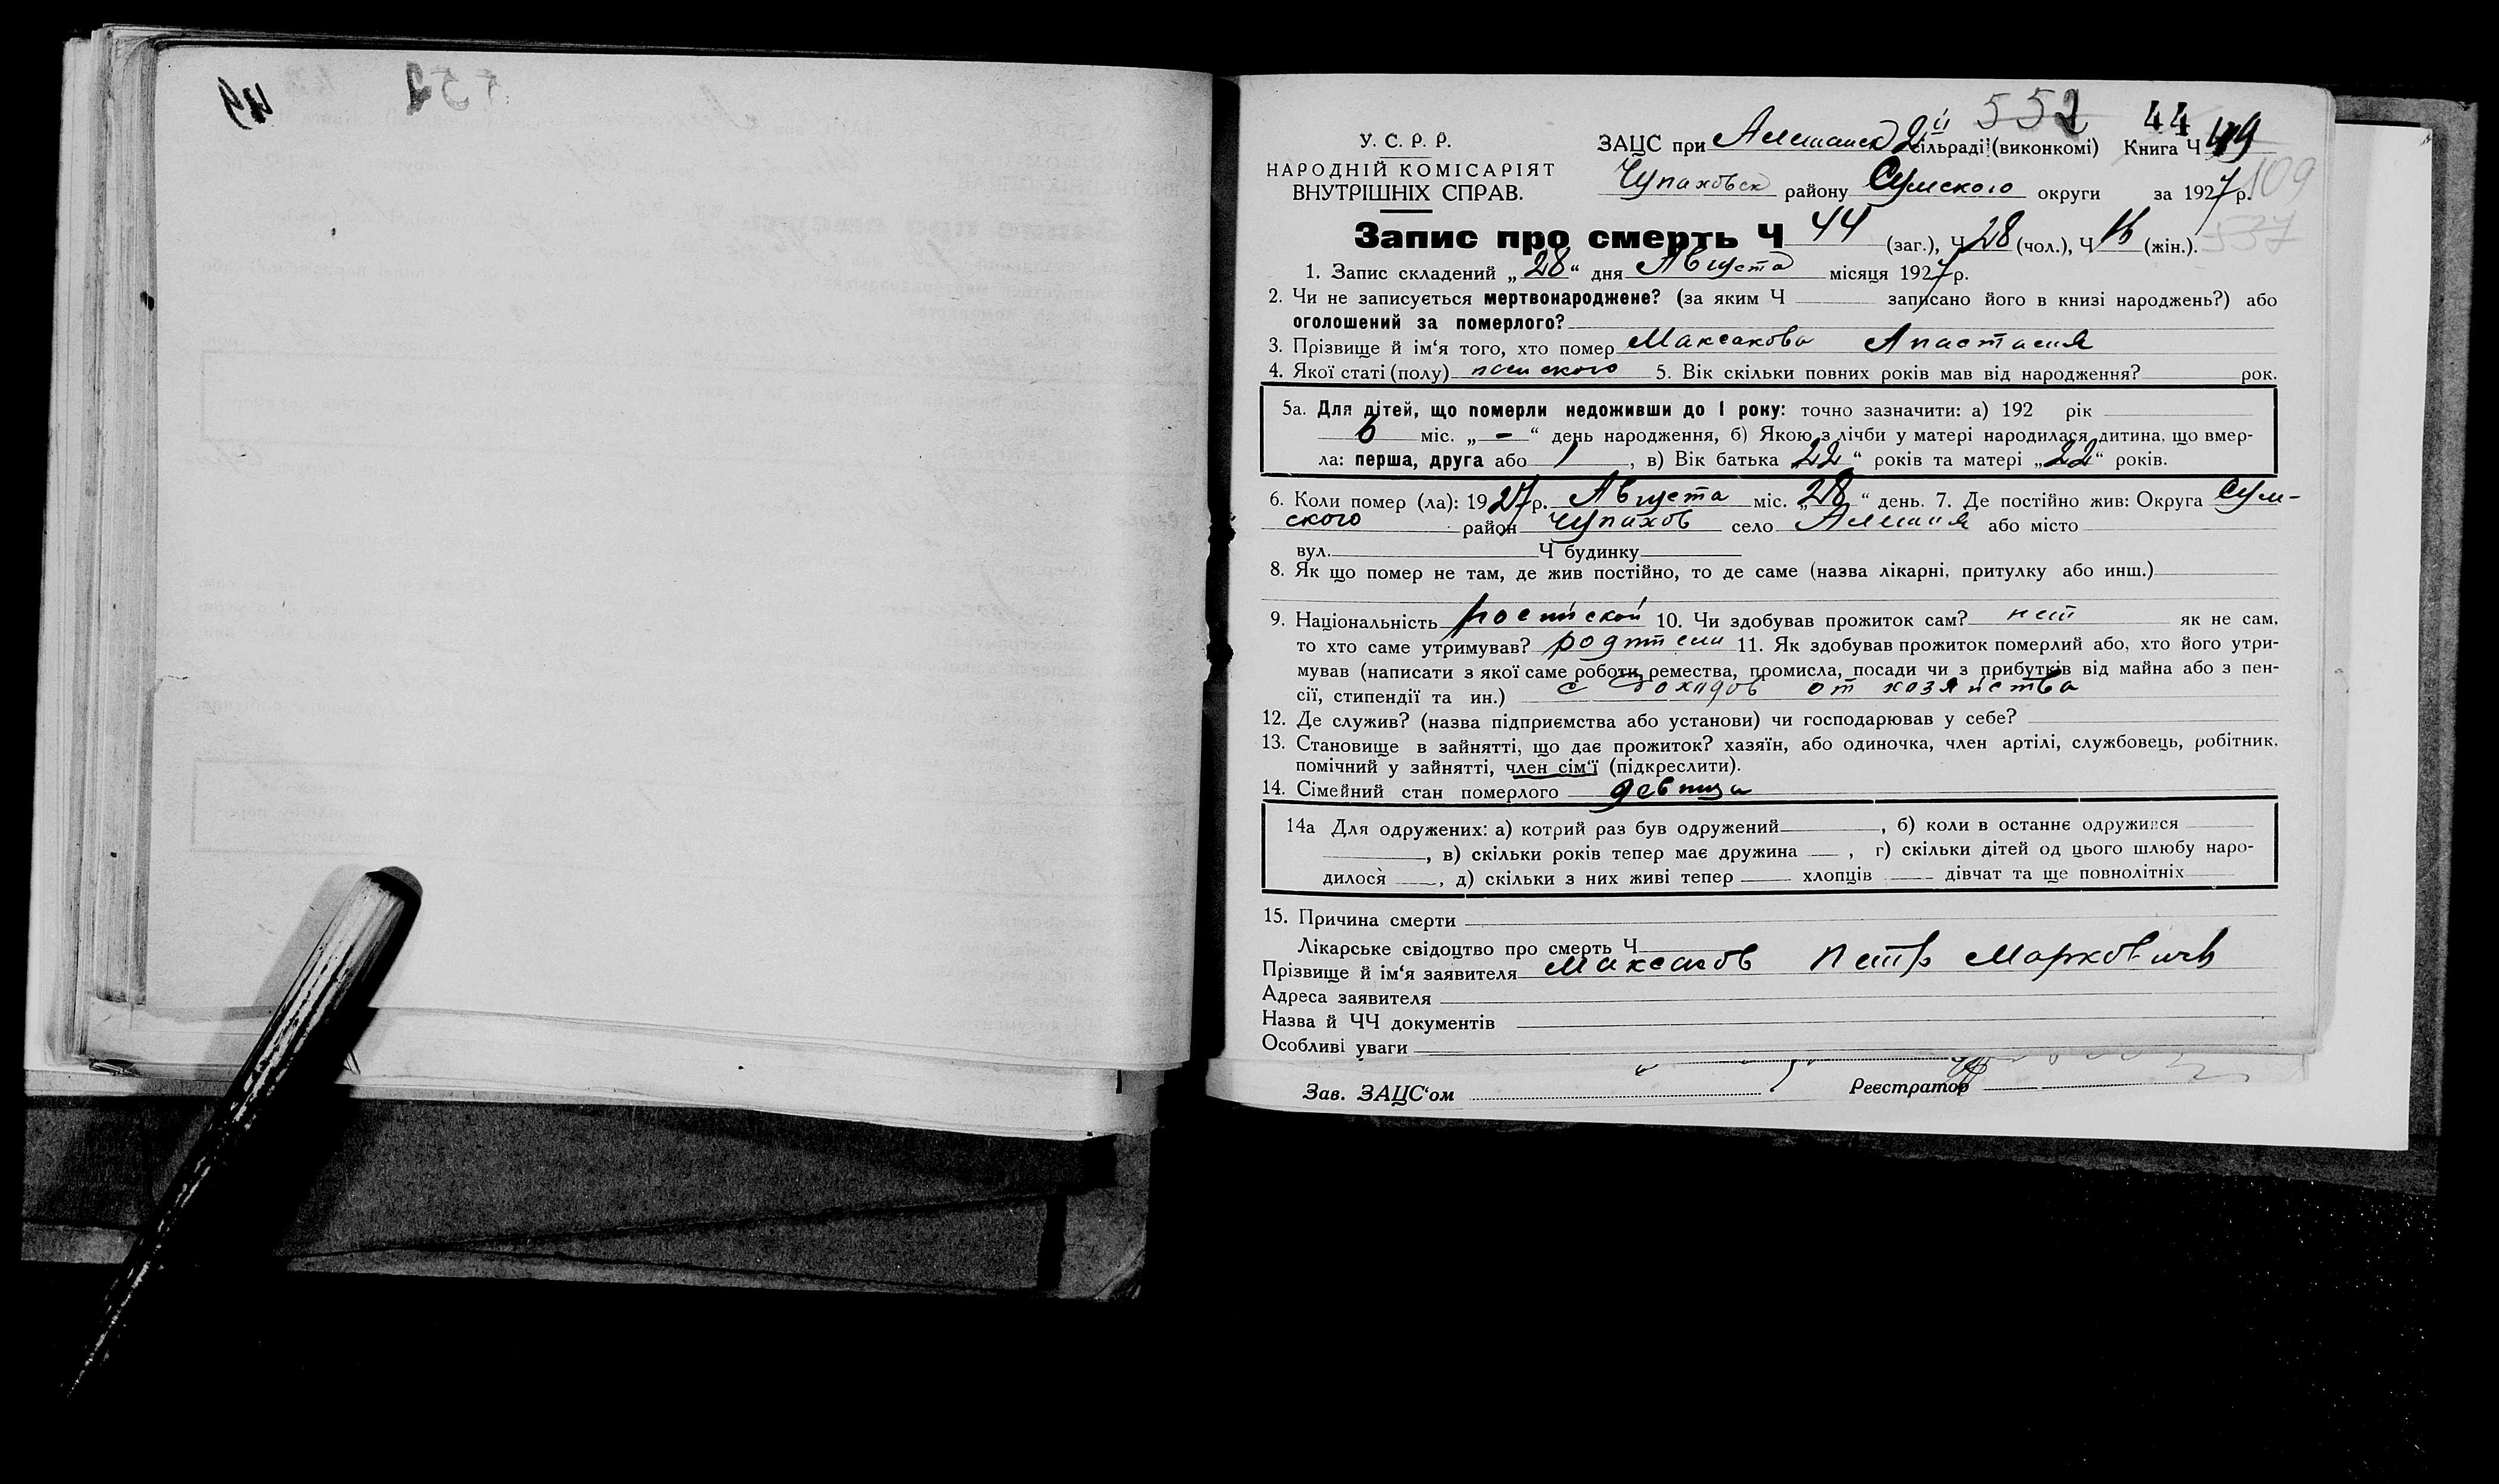 552 44
У. С. Р. Р.
ЗАЦС при 2й сільраді (виконкомі) Книга Ч 49
НАРОДНІЙ КОМІСАРІЯТ
ВНУТРІШНІХ СПРАВ.
Чупаховск району Сумского округи за 1927 р. 109
Запис про смерть Ч 44 (заг.), Ч 28 (чол.), Ч 16 (жін.). 537
1. Запис складений „28“ дня Августа місяця 1927 р.
2. Чи не записується мертвонароджене? (за яким Ч записано його в книзі народжень?) або
оголошений за померлого?
3. Прізвище й ім‘я того, хто помер Максакова Анастасия
4. Якої статі (полу) 5. Вік скільки повних років мав від народження? рок.
5а. Для дітей, що померли недоживши до 1 року: точно зазначити: а) 192 рік
6 міс. „-“ день народження, б) Якою з лічби у матері народилася дитина, що вмер-
ла: перша, друга або 1, в) Вік батька „22“ років та матері „22“ років.
6. Коли помер (ла): 1927 р. Августа міс. „28“ день. 7. Де постійно жив: Округа Сум-
ского район Чупахов село або місто
вул. Ч будинку
8. Як що помер не там, де жив постійно, то де саме (назва лікарні, притулку або инш.)
9. Національність 10. Чи здобував прожиток сам? нет як не сам,
то хто саме утримував? родители 11. Як здобував прожиток померлий або, хто його утри-
мував (написати з якої саме роботи, ремества, промисла, посади чи з прибутків від майна або з пен-
сії, стипендії та ин.) с доходов от хозяйства
12. Де служив? (назва підприємства або установи) чи господарював у себе?
13. Становище в зайнятті, що дає прожиток? хазяїн, або одиночка, член артілі, службовець, робітник,
помічний у зайнятті, член сім‘ї (підкреслити).
14. Сімейний стан померлого девица
14а Для одружених: а) котрий раз був одружений , б) коли в останнє одружився
, в) скільки років тепер має дружина , г) скільки дітей од цього шлюбу наро-
дилося , д) скільки з них живі тепер хлопців дівчат та ще повнолітніх
15. Причина смерти
Лікарське свідоцтво про смерть Ч
Прізвище й ім‘я заявителя Максаков Петр Маркович
Адреса заявителя
Назва й ЧЧ документів
Особливі уваги
Зав. ЗАЦС‘ом Реєстратор